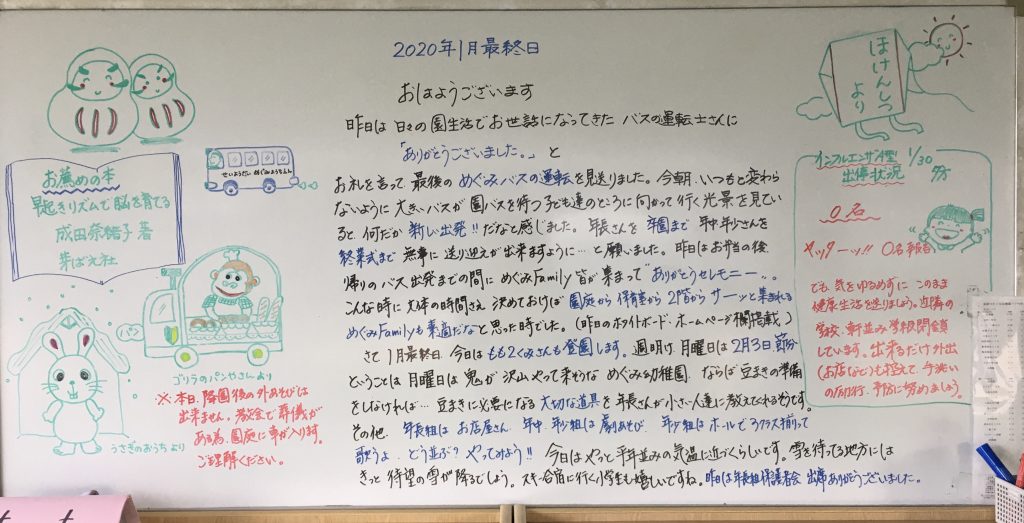 2020年1月最終日
おはようございます
昨日は 日々の園生活でお世話になってきた バスの運転士さんに
「ありがとうございました。」と
お礼を言って、最後の めぐみバスの運転を見送りました。今朝、いつもと変わら
ないように 大きいバスが 園バスを待つ子ども達のところに 向かって行く光景を見てい
ると、何だか 新しい出発!! だなと感じました。年長さんを 卒園まで 年中年少さんを
終業式まで 無事に 送り迎えが出来ますように… と願いました。昨日はお弁当の後、
帰りのバス出発までの間に めぐみFamily 皆が集まって ありがとうセレモニー
こんな時に 大体の時間さえ 決めておけば 園庭から 保育室から 2階から サーッと集まれる
めぐみFamilyも素適だなと思った時でした。(昨日のホワイトボード・ホームページ欄掲載)
さて 1月最終日、今日は もも2くみさんも登園します。週明け、月曜日は 2月3日 節分
ということは 月曜日は 鬼が 沢山 やって来そうな めぐみ幼稚園、ならば 豆まきの準備
をしなければ… 豆まきに必要になる 大切な道具を 年長さんが 小さい人達に 教えてくれるそうです。
その他、年長組は お店屋さん 年中、年少組は 劇あそび、年少組は ホールで 3クラス揃って
歌うよ、どう並ぶ? やってみよう!! 今日は やっと 平年並みの気温に近づくらしいです。雪を待ってる地方には
きっと 待望の雪が降るでしょう。スキー合宿に行く小学生も嬉しいですね。昨日は年長組保護者会 出席ありがとうございました。
お薦めの本
早起きリズムで脳を育てる
成田奈緒子 著
芽ばえ社
せいようだい めぐみようちえん
パン
ゴリラのパンやさん より
うさぎのおうち より
※ 本日、降園後の外あそびは
出来ません。教会で葬儀が
ある為、園庭に車が入ります。
ご理解ください。
ほけんしつ
より
インフルエンザ
出停状況
1/30
0名
ヤッターッ!! 0名報告、
でも、気をゆるめずに このまま
健康生活を送りましょう。近隣の
学校、軒並み学級閉鎖
しています。出来るだけ外出
(お店など)も控えて、手洗い
予防に努めましょう。